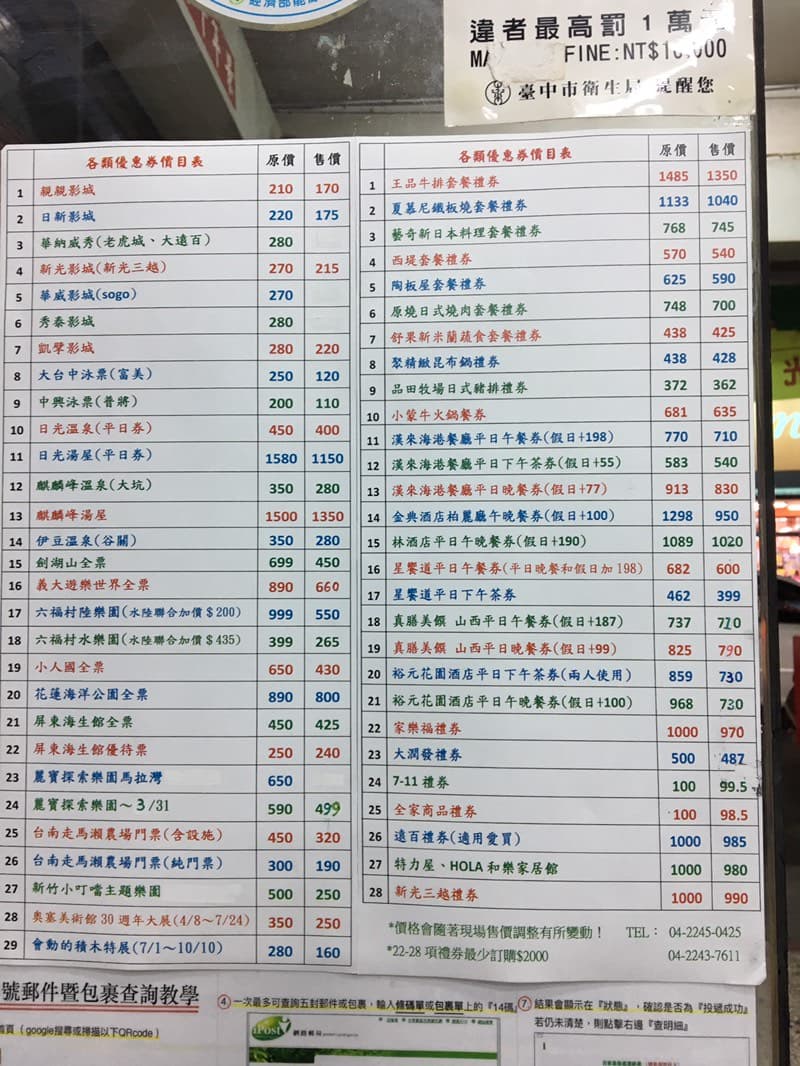 經濟部能
違者最高罰 1 萬元
FINE:NT$10,000
臺中市衛生局 提醒您
各類優惠券價目表 原價 售價
1 親親影城 210 170
2 日新影城 220 175
3 華納威秀(老虎城、大遠百) 280
4 新光影城(新光三越) 270 215
5 華威影城(sogo) 270
6 秀泰影城 280
7 凱擘影城 280 220
8 大台中泳票(富美) 250 120
9 中興泳票(普將) 200 110
10 日光溫泉(平日券) 450 400
11 日光湯屋(平日券) 1580 1150
12 麒麟峰溫泉(大坑) 350 280
13 麒麟峰湯屋 1500 1350
14 伊豆溫泉(谷關) 350 280
15 劍湖山全票 699 450
16 義大遊樂世界全票 890 660
17 六福村陸樂園(水陸聯合加價$200) 999 550
18 六福村水樂園(水陸聯合加價$435) 399 265
19 小人國全票 650 430
20 花蓮海洋公園全票 890 800
21 屏東海生館全票 450 425
22 屏東海生館優待票 250 240
23 麗寶探索樂園馬拉灣 650
24 麗寶探索樂園～3/31 590 499
25 台南走馬瀨農場門票(含設施) 450 320
26 台南走馬瀨農場門票(純門票) 300 190
27 新竹小叮噹主題樂園 500 250
28 奧塞美術館30週年大展(4/8～7/24) 350 250
29 會動的積木特展(7/1～10/10) 280 160
各類優惠券價目表 原價 售價
1 王品牛排套餐禮券 1485 1350
2 夏慕尼鐵板燒套餐禮券 1133 1040
3 藝奇新日本料理套餐禮券 768 745
4 西堤套餐禮券 570 540
5 陶板屋套餐禮券 625 590
6 原燒日式燒肉套餐禮券 748 700
7 舒果新米蘭蔬食套餐禮券 438 425
8 聚精緻昆布鍋禮券 438 428
9 品田牧場日式豬排禮券 372 362
10 小蒙牛火鍋餐券 681 635
11 漢來海港餐廳平日午餐券(假日+198) 770 710
12 漢來海港餐廳平日下午茶券(假日+55) 583 540
13 漢來海港餐廳平日晚餐券(假日+77) 913 830
14 金典酒店柏麗廳午晚餐券(假日+100) 1298 950
15 林酒店平日午晚餐券(假日+190) 1089 1020
16 星饗道平日午餐券(平日晚餐和假日加198) 682 600
17 星饗道平日下午茶券 462 399
18 真膳美饌 山西平日午餐券(假日+187) 737 710
19 真膳美饌 山西平日晚餐券(假日+99) 825 790
20 裕元花園酒店平日下午茶券(兩人使用) 859 730
21 裕元花園酒店平日午晚餐券(假日+100) 968 730
22 家樂福禮券 1000 970
23 大潤發禮券 500 487
24 7-11 禮券 100 99.5
25 全家商品禮券 100 98.5
26 遠百禮券(適用愛買) 1000 985
27 特力屋、HOLA 和樂家居館 1000 980
28 新光三越禮券 1000 990
*價格會隨著現場售價調整有所變動！ TEL： 04-2245-0425
*22-28 項禮券最少訂購$2000 04-2243-7611
號郵件暨包裹查詢教學
首頁（google搜尋或掃描以下QRcode）
④ 一次最多可查詢五封郵件或包裹，輸入條碼單或包裹單上的『14碼
iPost
⑦ 結果會顯示在『狀態』，確認是否為『投遞成功』
若仍未清楚，則點擊右邊『查明細』